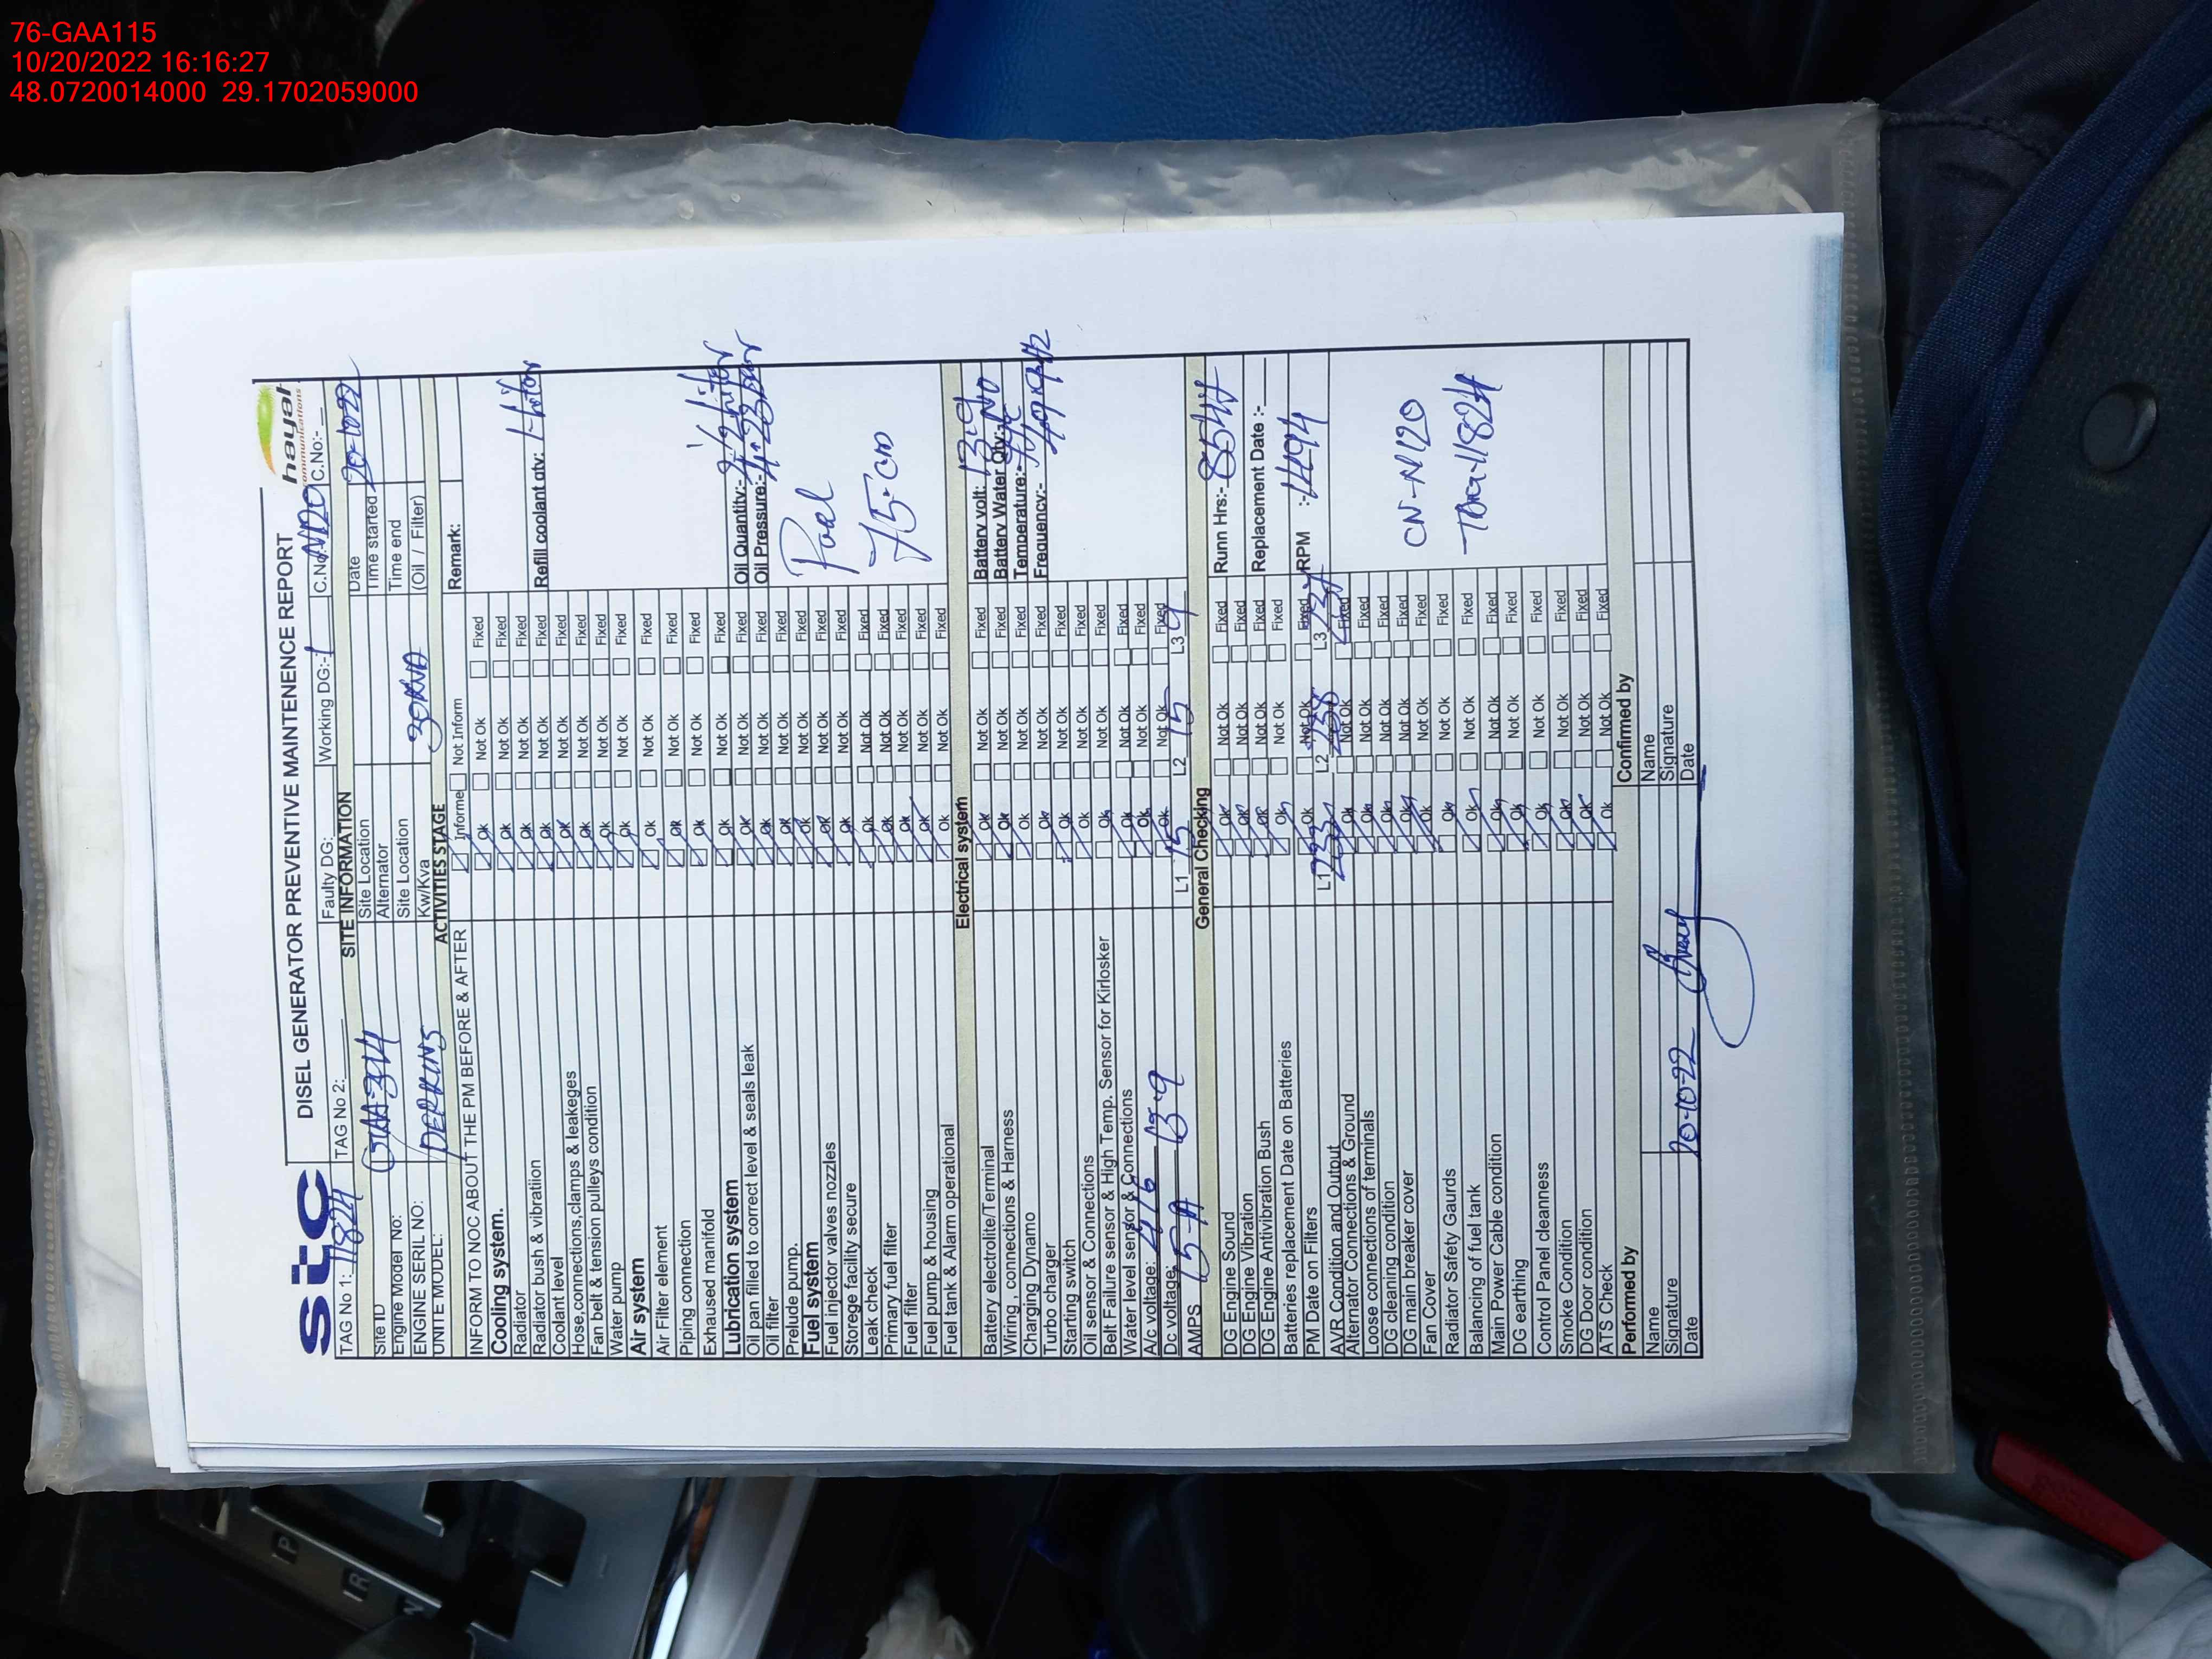 76-GAA115
10/20/2022 16:16:27
48.0720014000 29.1702059000
stc
DISEL GENERATOR PREVENTIVE MAINTENENCE REPORT
hayat
communications
TAG No 1: 11824 TAG No 2: Faulty DG: Working DG:-1 C.No: N120 C.No:-
SITE INFORMATION
Site ID Site Location Date 20-10-22
Engine Model No: Alternator Time started
ENGINE SERIL NO: Site Location Time end
UNITE MODEL: PERKINS Kw/Kva 30KVA (Oil / Filter)
ACTIVITIES STAGE
INFORM TO NOC ABOUT THE PM BEFORE & AFTER Informe Not Inform Remark:
Cooling system. Ok Not Ok Fixed
Radiator Ok Not Ok Fixed
Radiator bush & vibratiion Ok Not Ok Fixed
Coolant level Ok Not Ok Fixed Refill coolant qty:
Hose,connections,clamps & leakeges Ok Not Ok Fixed
Fan belt & tension pulleys condition Ok Not Ok Fixed
Water pump Ok Not Ok Fixed
Air system Ok Not Ok Fixed
Air Filter element Ok Not Ok Fixed
Piping connection Ok Not Ok Fixed
Exhaused manifold Ok Not Ok Fixed
Lubrication system Ok Not Ok Fixed
Oil pan filled to correct level & seals leak Ok Not Ok Fixed Oil Quantity:-
Oil filter Ok Not Ok Fixed Oil Pressure:-
Prelude pump. Ok Not Ok Fixed
Fuel system Ok Not Ok Fixed
Fuel injector valves nozzles Ok Not Ok Fixed
Storege facility secure Ok Not Ok Fixed
Leak check Ok Not Ok Fixed
Primary fuel filter Ok Not Ok Fixed 75-cm
Fuel filter Ok Not Ok Fixed
Fuel pump & housing Ok Not Ok Fixed
Fuel tank & Alarm operational Ok Not Ok Fixed
Electrical system
Battery electrolite/Terminal Ok Not Ok Fixed Battery volt: 13.9
Wiring , connections & Harness Ok Not Ok Fixed Battery Water Qty:- No
Charging Dynamo Ok Not Ok Fixed Temperature:-
Turbo charger Ok Not Ok Fixed Frequency:-
Starting switch Ok Not Ok Fixed
Oil sensor & Connections Ok Not Ok Fixed
Belt Failure sensor & High Temp. Sensor for Kirlosker Ok Not Ok Fixed
Water level sensor & Connections Ok Not Ok Fixed
A/c voltage: 416 Ok Not Ok Fixed
Dc voltage: 13.9 Ok Not Ok Fixed
AMPS 15-A L1 15 L2 15 L3 9
General Checking
DG Engine Sound Ok Not Ok Fixed Runn Hrs:- 8544
DG Engine Vibration Ok Not Ok Fixed
DG Engine Antivibration Bush Ok Not Ok Fixed Replacement Date :-
Batteries replacement Date on Batteries Ok Not Ok Fixed
PM Date on Filters Ok Not Ok Fixed RPM :-1494
AVR Condition and Output L1 233 L2 238 L3
Alternator Connections & Ground Ok Not Ok Fixed
Loose connections of terminals Ok Not Ok Fixed
DG cleaning condition Ok Not Ok Fixed
DG main breaker cover Ok Not Ok Fixed
Fan Cover Ok Not Ok Fixed CN-N120
Radiator Safety Gaurds Ok Not Ok Fixed
Balancing of fuel tank Ok Not Ok Fixed
Main Power Cable condition Ok Not Ok Fixed
DG earthing Ok Not Ok Fixed
Control Panel cleanness Ok Not Ok Fixed
Smoke Condition Ok Not Ok Fixed
DG Door condition Ok Not Ok Fixed
ATS Check Ok Not Ok Fixed
Performed by Confirmed by
Name Name
Signature Signature
Date 20-10-22 Date
P
R
N